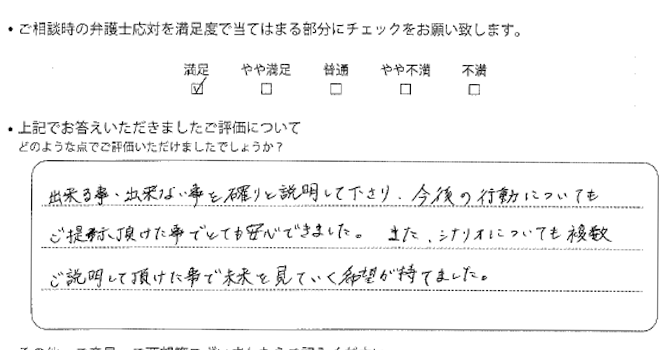 • ご相談時の弁護士応対を満足度で当てはまる部分にチェックをお願い致します。
満足 やや満足 普通 やや不満 不満
☑ □ □ □ □
• 上記でお答えいただきましたご評価について
どのような点でご評価いただけましたでしょうか？
出来る事・出来ない事を確りと説明して下さり、今後の行動についても
ご提示頂けた事でとても安心できました。また、シナリオについても複数
ご説明して頂けた事で未来を見ていく希望が持てました。